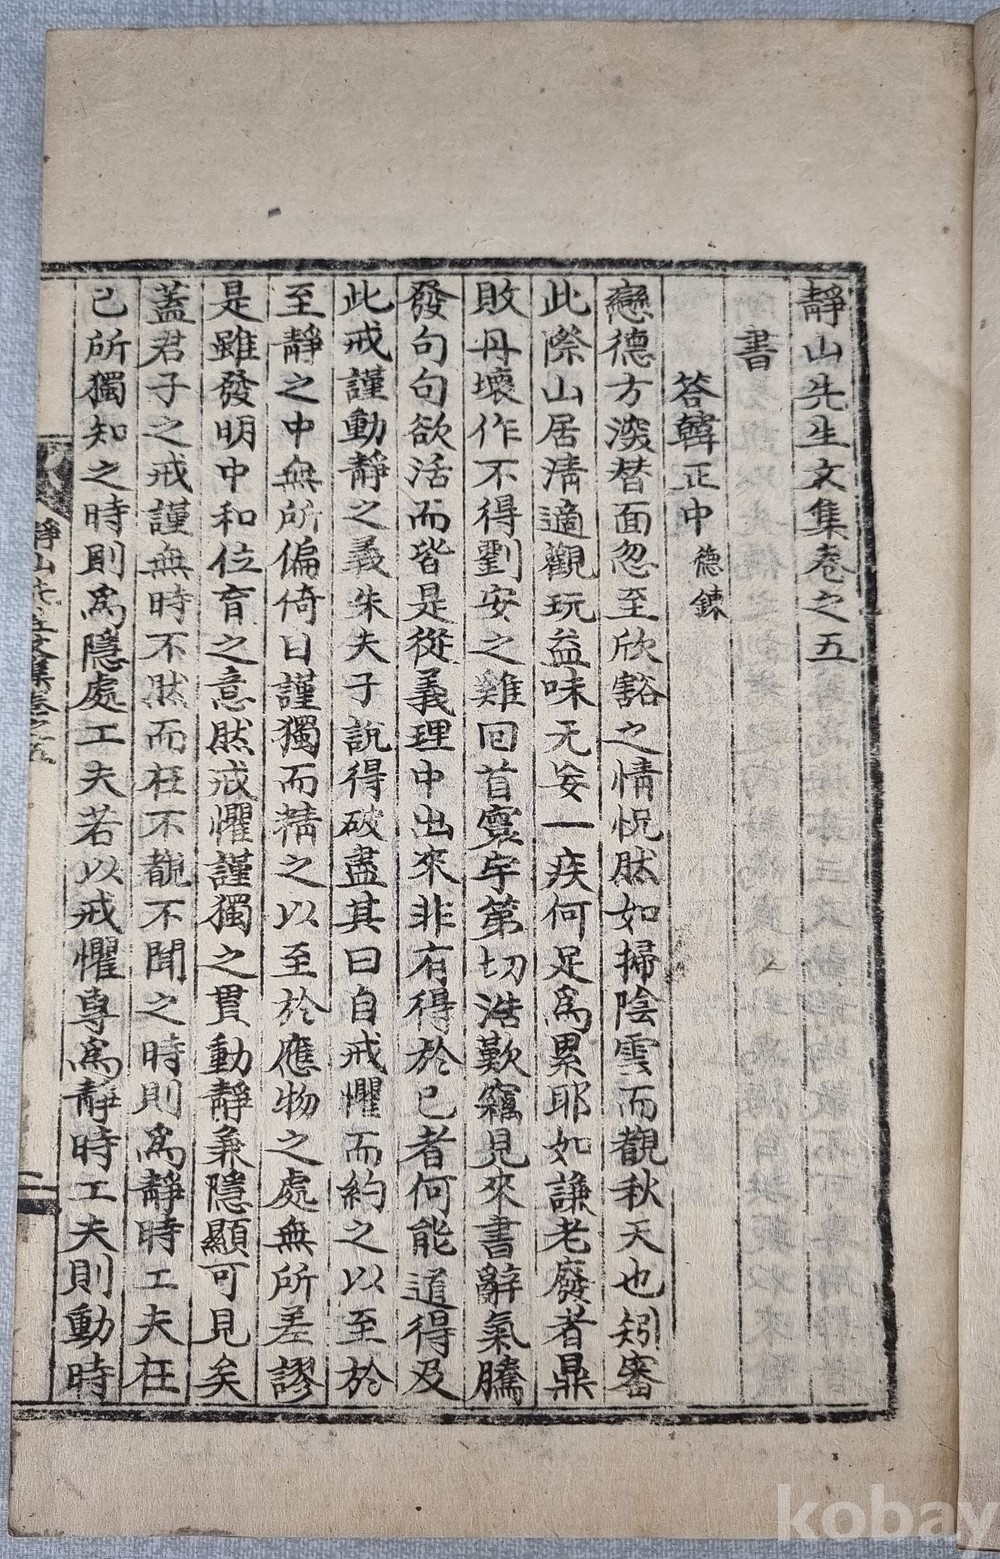 靜山先生文集卷之五
書
答韓正中 德鍊
戀德方深替面忽至欣豁之情怳然如掃陰雲而覩秋天也矧審
此際山居淸適觀玩益味无妄一疾何足爲累耶如謙老廢者鼎
敗丹壞作不得劉安之雞回首雲宇第切浩歎竊見來書辭氣騰
發句句欲活而皆是從義理中出來非有得於己者何能道得及
此戒謹動靜之義朱夫子說得破盡其曰自戒懼而約之以至於
至靜之中無所偏倚曰謹獨而精之以至於應物之處無所差謬
是雖發明中和位育之意然戒懼謹獨之貫動靜兼隱顯可見矣
蓋君子之戒謹無時不然而在不覩不聞之時則爲靜時工夫在
己所獨知之時則爲隱處工夫若以戒懼專爲靜時工夫則動時
靜山先生文集卷之五
二
kobay